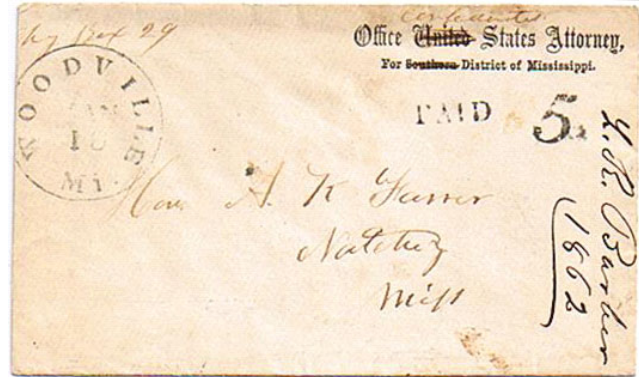 Confederate
my Box 29
Office United States Attorney,
For Southern District of Mississippi.
WOODVILLE
JAN
10
MI.
PAID 5
Hon. A. K. Farrar
Natchez
Miss
L. R. Barber
1862